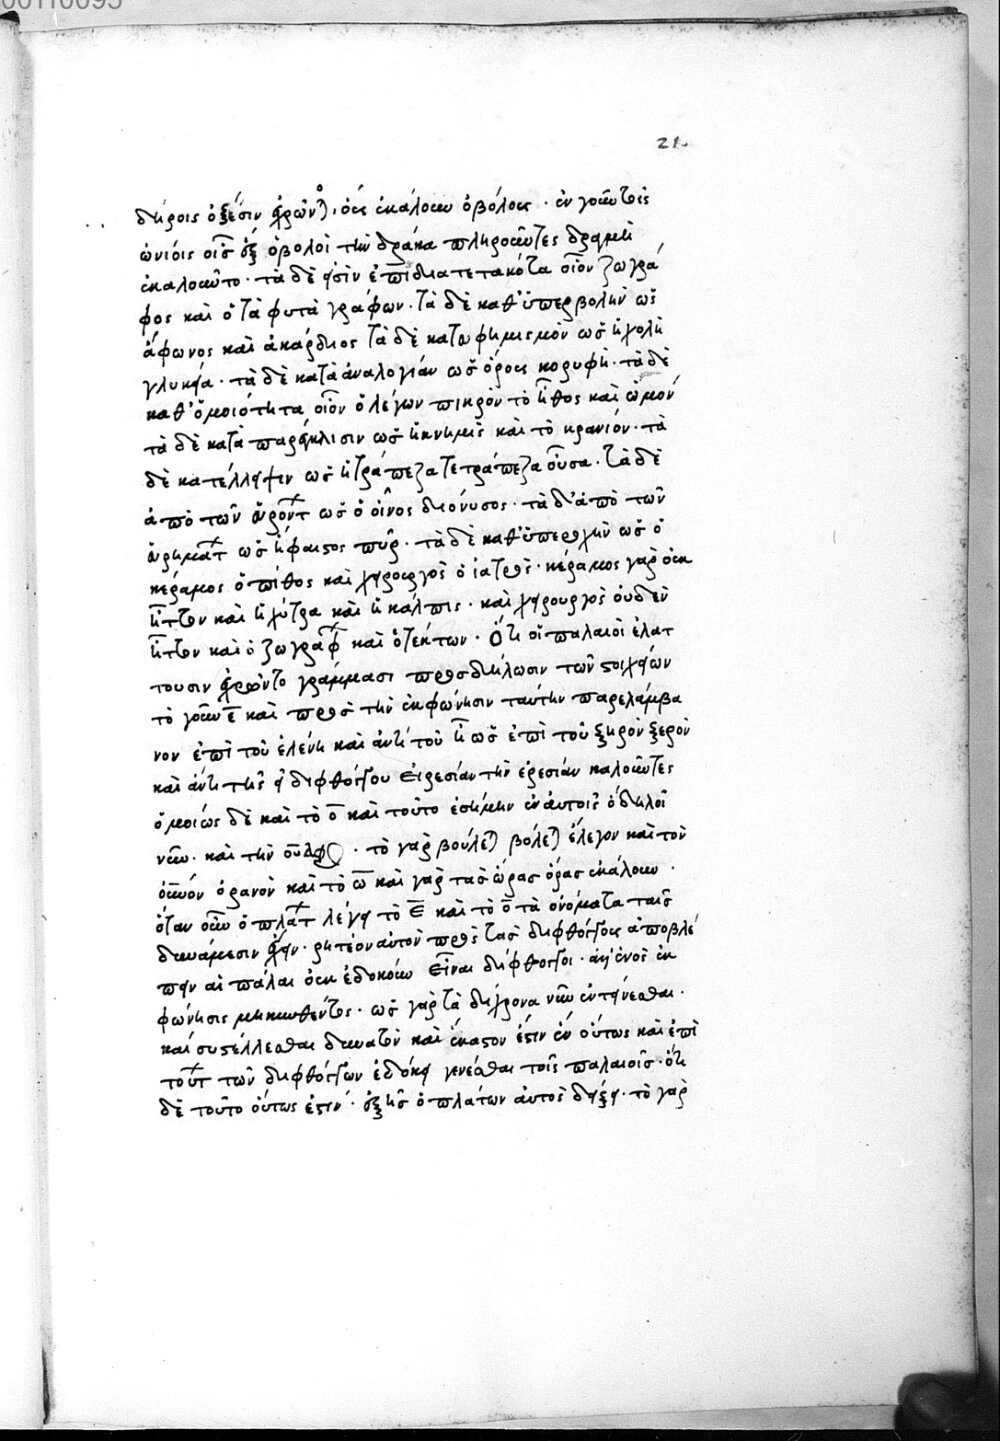 00110095
21
δήροις ὀξέσιν ἐχρῶντο, οὓς ἐκάλουν ὀβόλους · ἐν γοῦν τοῖς
ὠνίοις οἱ ἓξ ὀβολοὶ τὴν δράκα πληροῦντες δραχμὴ
ἐκαλοῦντο · τὰ δέ φησιν ἐπιδιατετακότα οἷον ζωγρά
φος καὶ ὁ τὰ φυτὰ γράφων · τὰ δὲ καθ' ὑπερβολὴν ὡς
ἄφωνος καὶ ἀκάρδιος τὰ δὲ κατ' εὐφημισμὸν ὡς ἡ χολὴ
γλυκεῖα · τὰ δὲ κατὰ ἀναλογίαν ὡς ὄρους κορυφή · τὰ δὲ
καθ' ὁμοιότητα οἷον ὁ λέγων πικρὸν τὸ ἦθος καὶ ὠμόν
τὰ δὲ κατὰ παρέγκλισιν ὡς ἡ κνημὶς καὶ τὸ κρανίον · τὰ
δὲ κατ' ἔλλειψιν ὡς ἡ τράπεζα τετράπεζα οὖσα · τὰ δὲ
ἀπὸ τῶν εὑρόντων ὡς ὁ οἶνος διόνυσος · τὰ δ' ἀπὸ τῶν
εὑρημάτων ὡς ἥφαιστος πῦρ · τὰ δὲ καθ' ὑπεροχὴν ὡς ὁ
κέραμος ὁ πίθος καὶ χειρουργὸς ὁ ἰατρός · κέραμος γὰρ οὐκ
ἧττον καὶ ἡ χύτρα καὶ ἡ κάλπις · καὶ χειρουργὸς οὐδὲν
ἧττον καὶ ὁ ζωγράφος καὶ ὁ τέκτων · Ὅτι οἱ παλαιοὶ ἐλάτ
τουσιν ἐχρῶντο γράμμασι πρὸς δήλωσιν τῶν στοιχείων
τὸ γοῦν ε καὶ πρὸς τὴν ἐκφώνησιν ταύτην παρελάμβα
νον ἐπὶ τοῦ ἑλένη καὶ ἀντὶ τοῦ η ὡς ἐπὶ τοῦ ξηρὸν ξερὸν
καὶ ἀντὶ τῆς ει διφθόγγου εἰρεσίαν τὴν ἐρεσίαν καλοῦντες
ὁμοίως δὲ καὶ τὸ ο καὶ τοῦτο ἐσήμην ἐν αὐτοῖς ὃ δηλοῖ
νῦν · καὶ τὴν ου διφ · τὸ γὰρ βούλεται βόλεται ἔλεγον καὶ τὸν
οὐρανὸν ὀρανὸν καὶ τὸ ω καὶ γὰρ τὰς ὥρας ὅρας ἐκάλουν ·
ὅταν οὖν ὁ πλάτων λέγῃ τὸ ε καὶ τὸ ο τὰ ὀνόματα ταῖς
δυνάμεσιν ἔχειν · ῥητέον αὐτὸν πρὸς τὰς διφθόγγους ἀποβλέ
πειν αἳ πάλαι οὐκ ἐδόκουν εἶναι δίφθογγοι · ἀλλ' ἑνὸς ἐκ
φώνησις μηκυνθέντος · ὡς γὰρ τὰ δίχρονα νῦν ἐκτείνεσθαι ·
καὶ συστέλλεσθαι δυνατὸν καὶ ἕκαστόν ἐστιν ἓν οὕτως καὶ ἐπὶ
τούτων τῶν διφθόγγων ἐδόκει γενέσθαι τοῖς παλαιοῖς · ὅτι
δὲ τοῦτο οὕτως ἐστίν · ἑξῆς ὁ πλάτων αὐτὸς δείξει · τὸ γὰρ